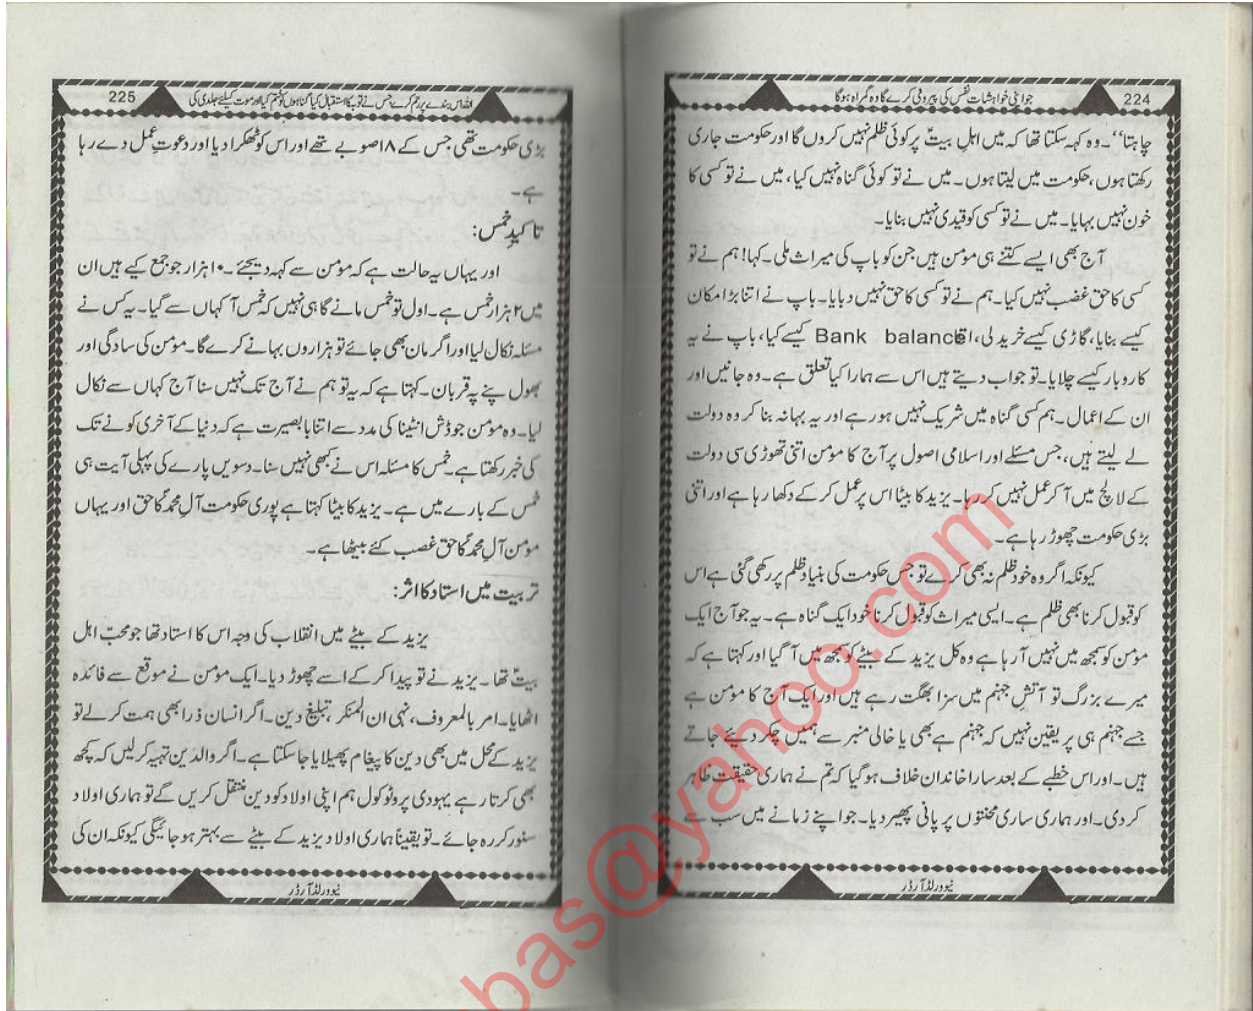 224
جو اپنی خواہشات نفس کی پیروی کرے گا وہ گمراہ ہوگا
چاہتا‘‘۔ وہ کہہ سکتا تھا کہ میں اہلِ بیتؑ پر کوئی ظلم نہیں کروں گا اور حکومت جاری
رکھتا ہوں، حکومت میں لیتا ہوں۔ میں نے تو کوئی گناہ نہیں کیا، میں نے تو کسی کا
خون نہیں بہایا۔ میں نے تو کسی کو قیدی نہیں بنایا۔
آج بھی ایسے کتنے ہی مؤمن ہیں جن کو باپ کی میراث ملی۔ کہا! ہم نے تو
کسی کا حق غضب نہیں کیا۔ ہم نے تو کسی کا حق نہیں دبایا۔ باپ نے اتنا بڑا مکان
کیسے بنایا، گاڑی کیسے خرید لی، اتنا Bank balance کیسے کیا، باپ نے یہ
کاروبار کیسے چلایا۔ تو جواب دیتے ہیں اس سے ہمارا کیا تعلق ہے۔ وہ جانیں اور
ان کے اعمال۔ ہم کسی گناہ میں شریک نہیں ہو رہے اور یہ بہانہ بنا کر وہ دولت
لے لیتے ہیں، جس مسئلے اور اسلامی اصول پر آج کا مؤمن اتنی تھوڑی سی دولت
کے لالچ میں آ کر عمل نہیں کر رہا۔ یزید کا بیٹا اس پر عمل کر کے دکھا رہا ہے اور اتنی
بڑی حکومت چھوڑ رہا ہے۔
کیونکہ اگر وہ خود ظلم نہ بھی کرے تو جس حکومت کی بنیاد ظلم پر رکھی گئی ہے اس
کو قبول کرنا بھی ظلم ہے۔ ایسی میراث کو قبول کرنا خود ایک گناہ ہے۔ یہ جو آج ایک
مؤمن کو سمجھ میں نہیں آ رہا ہے وہ کل یزید کے بیٹے کو سمجھ میں آ گیا اور کہتا ہے کہ
میرے بزرگ تو آتشِ جہنم میں سزا بھگت رہے ہیں اور ایک آج کا مؤمن ہے
جسے جہنم ہی پر یقین نہیں کہ جہنم ہے بھی یا خالی منبر سے ہمیں چکر دیئے جاتے
ہیں۔ اور اس خطبے کے بعد سارا خاندان خلاف ہو گیا کہ تم نے ہماری حقیقت ظاہر
کر دی۔ اور ہماری ساری محنتوں پر پانی پھیر دیا۔ جو اپنے زمانے میں سب سے
نیو ورلڈ آرڈر
225
اللہ اس بندے پر رحم کرے جس نے توبہ کا استقبال کیا گناہوں کو ختم کیا اور موت کیلئے جلدی کی
بڑی حکومت تھی جس کے ۱۸ صوبے تھے اور اس کو ٹھکرا دیا اور دعوتِ عمل دے رہا
ہے۔
تاکیدِ خمس:
اور یہاں یہ حالت ہے کہ مؤمن سے کہہ دیجئے۔ ۱۰ ہزار جو جمع کیے ہیں ان
میں ۲ ہزار خمس ہے۔ اول تو خمس مانے گا ہی نہیں کہ خمس آ کہاں سے گیا۔ یہ کس نے
مسئلہ نکال لیا اور اگر مان بھی جائے تو ہزاروں بہانے کرے گا۔ مؤمن کی سادگی اور
بھول پنے پہ قربان۔ کہتا ہے کہ یہ تو ہم نے آج تک نہیں سنا آج کہاں سے نکال
لیا۔ وہ مؤمن جو ڈش انٹینا کی مدد سے اتنا بابصیرت ہے کہ دنیا کے آخری کونے تک
کی خبر رکھتا ہے۔ خمس کا مسئلہ اس نے کبھی نہیں سنا۔ دسویں پارے کی پہلی آیت ہی
خمس کے بارے میں ہے۔ یزید کا بیٹا کہتا ہے پوری حکومت آلِ محمدؐ کا حق اور یہاں
مؤمن آلِ محمدؐ کا حق غصب کئے بیٹھا ہے۔
تربیت میں استاد کا اثر:
یزید کے بیٹے میں انقلاب کی وجہ اس کا استاد تھا جو محبّ اہل
بیتؑ تھا۔ یزید نے تو پیدا کر کے اسے چھوڑ دیا۔ ایک مؤمن نے موقع سے فائدہ
اٹھایا۔ امر بالمعروف، نہی ان المنکر، تبلیغِ دین۔ اگر انسان ذرا بھی ہمت کر لے تو
یزید کے محل میں بھی دین کا پیغام پھیلایا جا سکتا ہے۔ اگر والدین تہیہ کر لیں کہ کچھ
بھی کرتا رہے یہودی پروٹوکول ہم اپنی اولاد کو دین منتقل کریں گے تو ہماری اولاد
سنور کر رہ جائے۔ تو یقیناً ہماری اولاد یزید کے بیٹے سے بہتر ہو جائیگی کیونکہ ان کی
نیو ورلڈ آرڈر
bas@yahoo.com